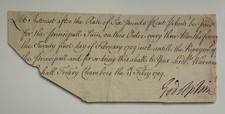 Let Interest after the Rate of Six Pounds P Cent be paid for
the Principall Sum on this Order, every three Months from
the Twenty first day of February 1709 untill the Repayment of
the Principall and for so doing this shall be Your Warrant
Whitehall Treasury Chambers the 21 Febry 1709
Godolphin